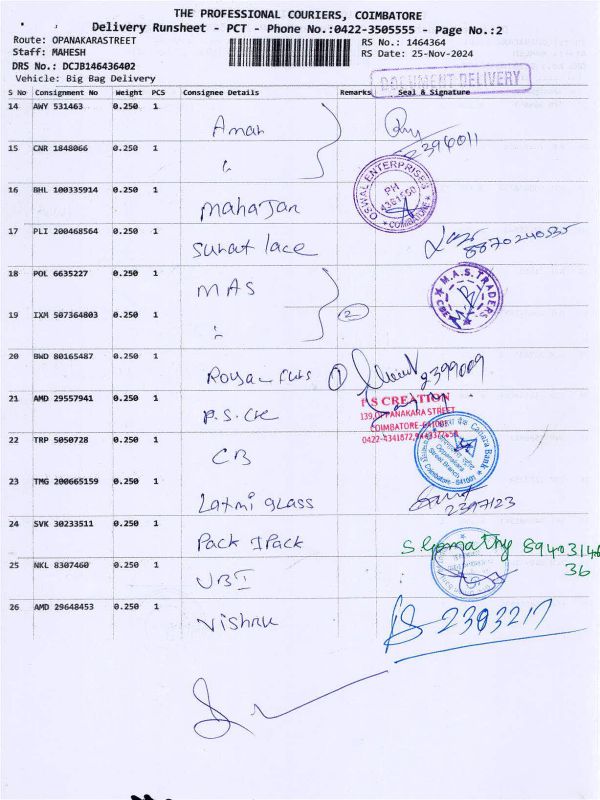 THE PROFESSIONAL COURIERS, COIMBATORE
Delivery Runsheet - PCT - Phone No.:0422-3505555 - Page No.:2
Route: OPANAKARASTREET
RS No.: 1464364
Staff: MAHESH
RS Date: 25-Nov-2024
DRS No.: DCJB146436402
Vehicle: Big Bag Delivery
DOCUMENT DELIVERY
S No Consignment No Weight PCS Consignee Details Remarks Seal & Signature
14 AWY 531463 0.250 1 Aman
2396011
15 CNR 1848066 0.250 1 "
OSWAL ENTERPRISES
PH
4381550
COIMBATORE
16 BHL 100335914 0.250 1 Mahajan
17 PLI 200468564 0.250 1 Surat lace
8870240535
18 POL 6635227 0.250 1 MAS
M.A.S. TRADERS
CBE
19 IXM 507364803 0.250 1 " 2
20 BWD 80165487 0.250 1 Royal 1
2399009
21 AMD 29557941 0.250 1 P.S. Cre
P S CREATION
139, OPPANAKARA STREET
COIMBATORE-641001
0422-4341872,
22 TRP 5050728 0.250 1 CB
Canara Bank
Oppanakara
Street Branch
Coimbatore - 641001
23 TMG 200665159 0.250 1 Laxmi glass
2397123
24 SVK 30233511 0.250 1 Pack I Pack
S. Gomathy 89403146
36
25 NKL 8307460 0.250 1 UBI
26 AMD 29648453 0.250 1 Vishnu
2393217